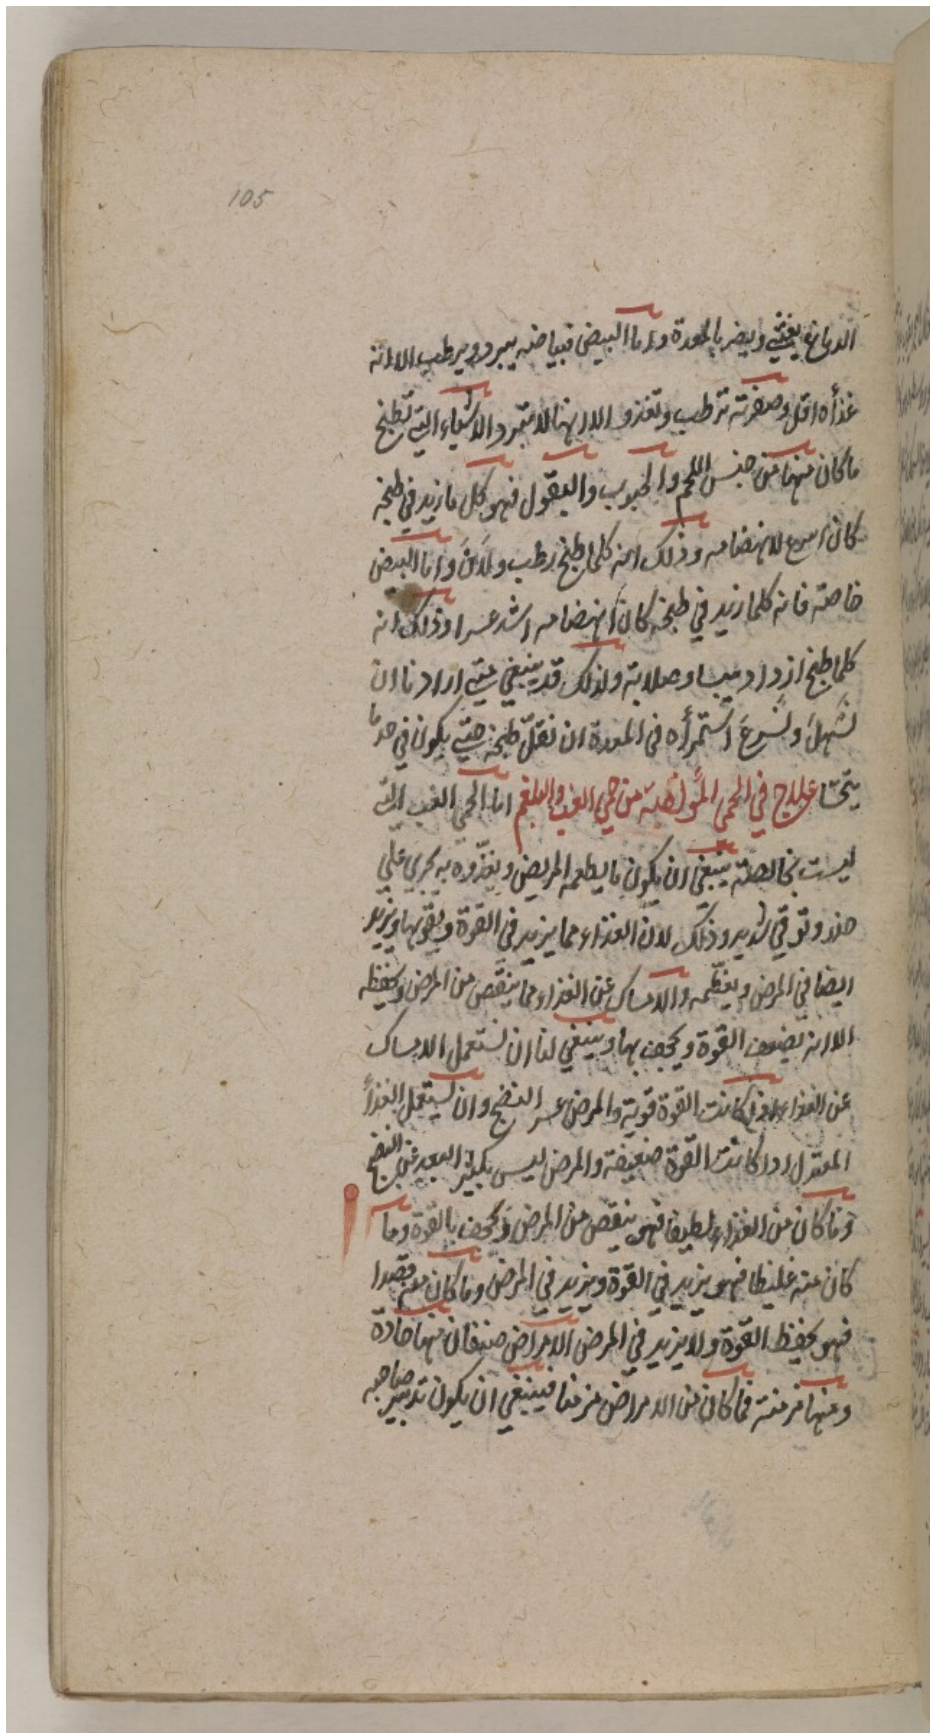 105
الدماغ يغثي ويضر بالمعدة واما البيض فبياضه يبرد ويرطب الا انه
غذاه اقل وصفرته ترطب وتغذو الا انها لا تبرد والاشياء التي تطبخ
ما كان منها من جنس اللحم والحبوب والبقول فهو كل ما زيد في طبخه
كان اسرع لانهضامه وذلك انه كلما طبخ رطب ولان واما البيض
خاصته فانه كلما زيد في طبخه كان انهضامه اشد عسرا وذلك انه
كلما طبخ ازداد يبسا وصلابة ولذلك قد ينبغي متي اردنا ان
نسهل ونسرع استمرأه في المعدة ان نقلل طبخه حتي يكون في حد ما
يتحسا علاج في الحمى المؤلفة من حمي الغب والبلغم اما الحمي الغب التي
ليست بخالصة ينبغي ان يكون ما يطعمه المريض ويغذوه به يجري علي
حذر وتوقي شديد وذلك لان الغذاء مما يزيد في القوة ويقويها ويزيد
ايضا في المرض ويعظمه والامساك عن الغذاء مما ينقص من المرض ويحفظه
الا انه يضعف القوة ويجحف بها وينبغي لنا ان نستعمل الامساك
عن الغذاء اذا كانت القوة قوية والمرض عسر النضج وان نستعمل الغذأ
المعتدل اذا كانت القوة ضعيفة والمرض ليس بكثير البعد عن النضج
وما كان من الغذاء لطيفا فهو ينقص من المرض ويجحف بالقوة وما
كان منه غليظا فهو يزيد في القوة ويزيد في المرض وما كان منه قصدا
فهو يحفظ القوة ولا يزيد في المرض الامراض صنفان منها حادة
ومنها مزمنة فما كان من الامراض مزمنا فينبغي ان يكون تدبير صاحبه